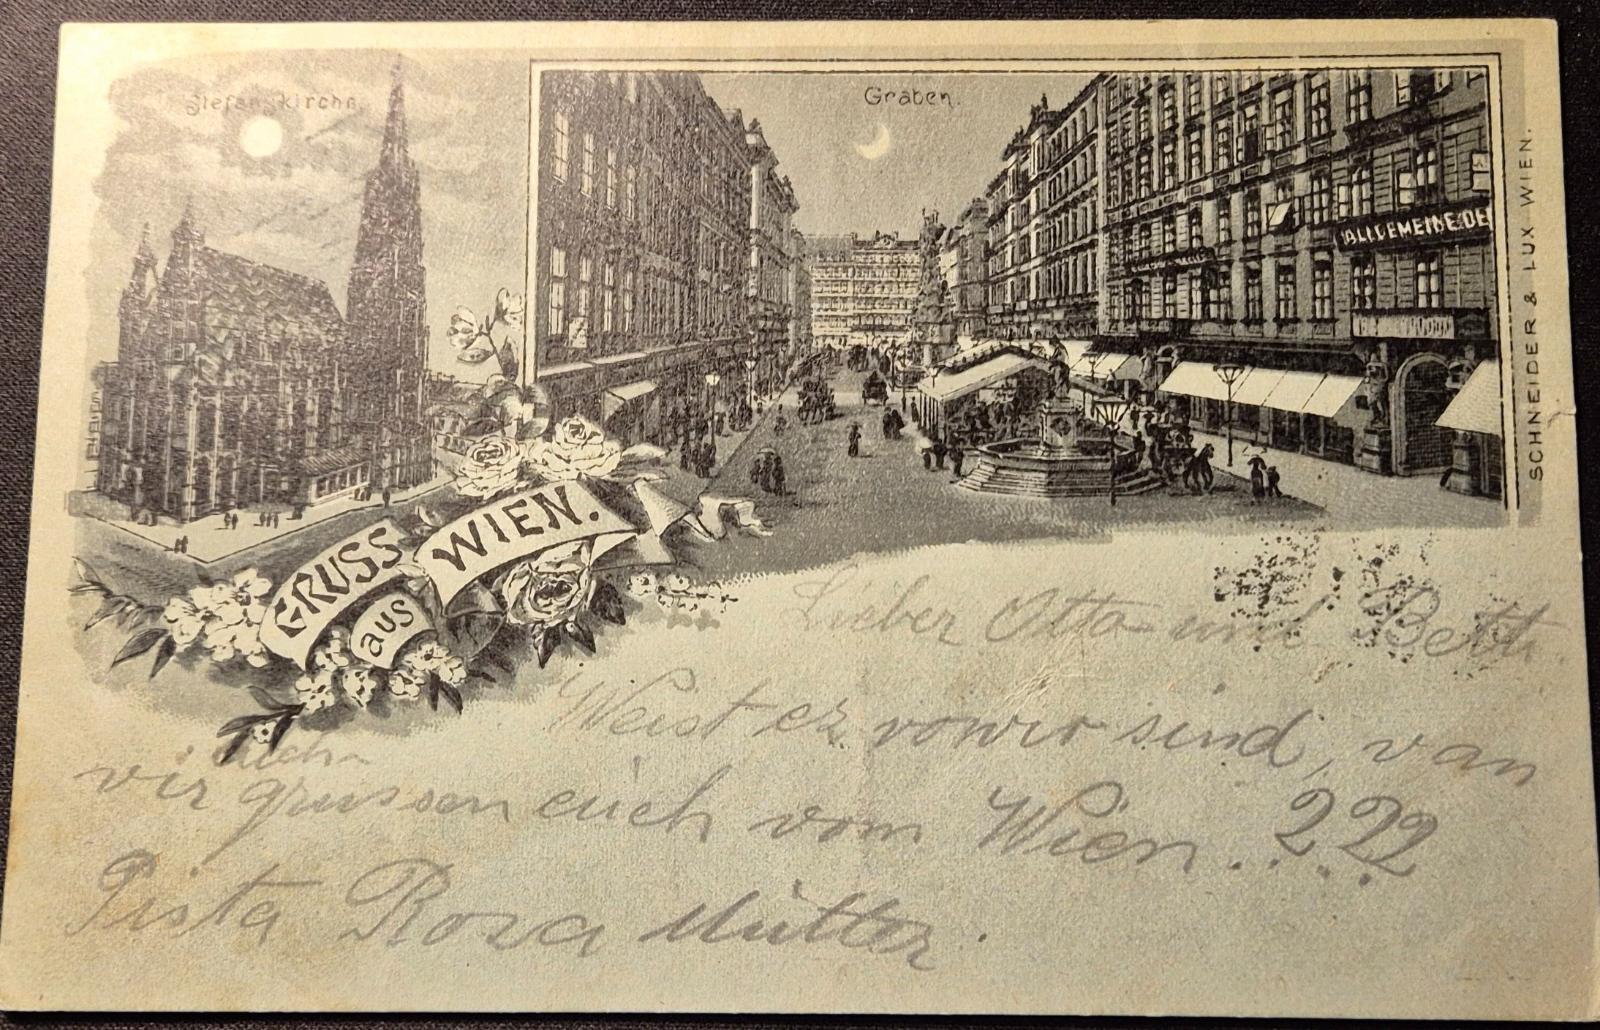 Stefanskirche.
Graben.
ALLGEMEINE DE
SCHNEIDER & LUX WIEN.
GRUSS
aus
WIEN.
Lieber Otto und Betti.
Weist ez vowir sind, van
wir grussen euch vom Wien. ???
Pista Roza Mutter.